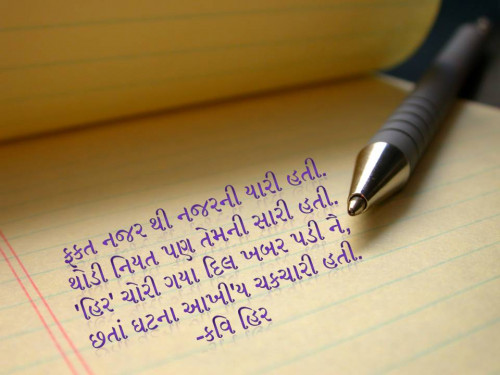 ફકત નજર થી નજરની યારી હતી.
થોડી નિયત પણ તેમની સારી હતી.
'હિર' ચોરી ગયા દિલ ખબર પડી નૈ,
છતાં ઘટના આખી'ય ચકચારી હતી.
-કવિ હિર